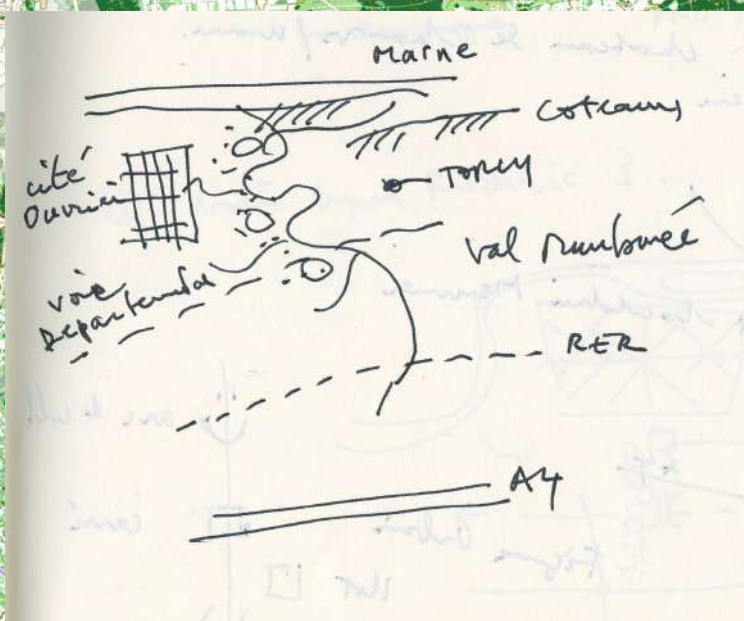 Marne
coteaux
cité
ouvrière
TORCY
val Maubuée
voie
Départementale
RER
A4